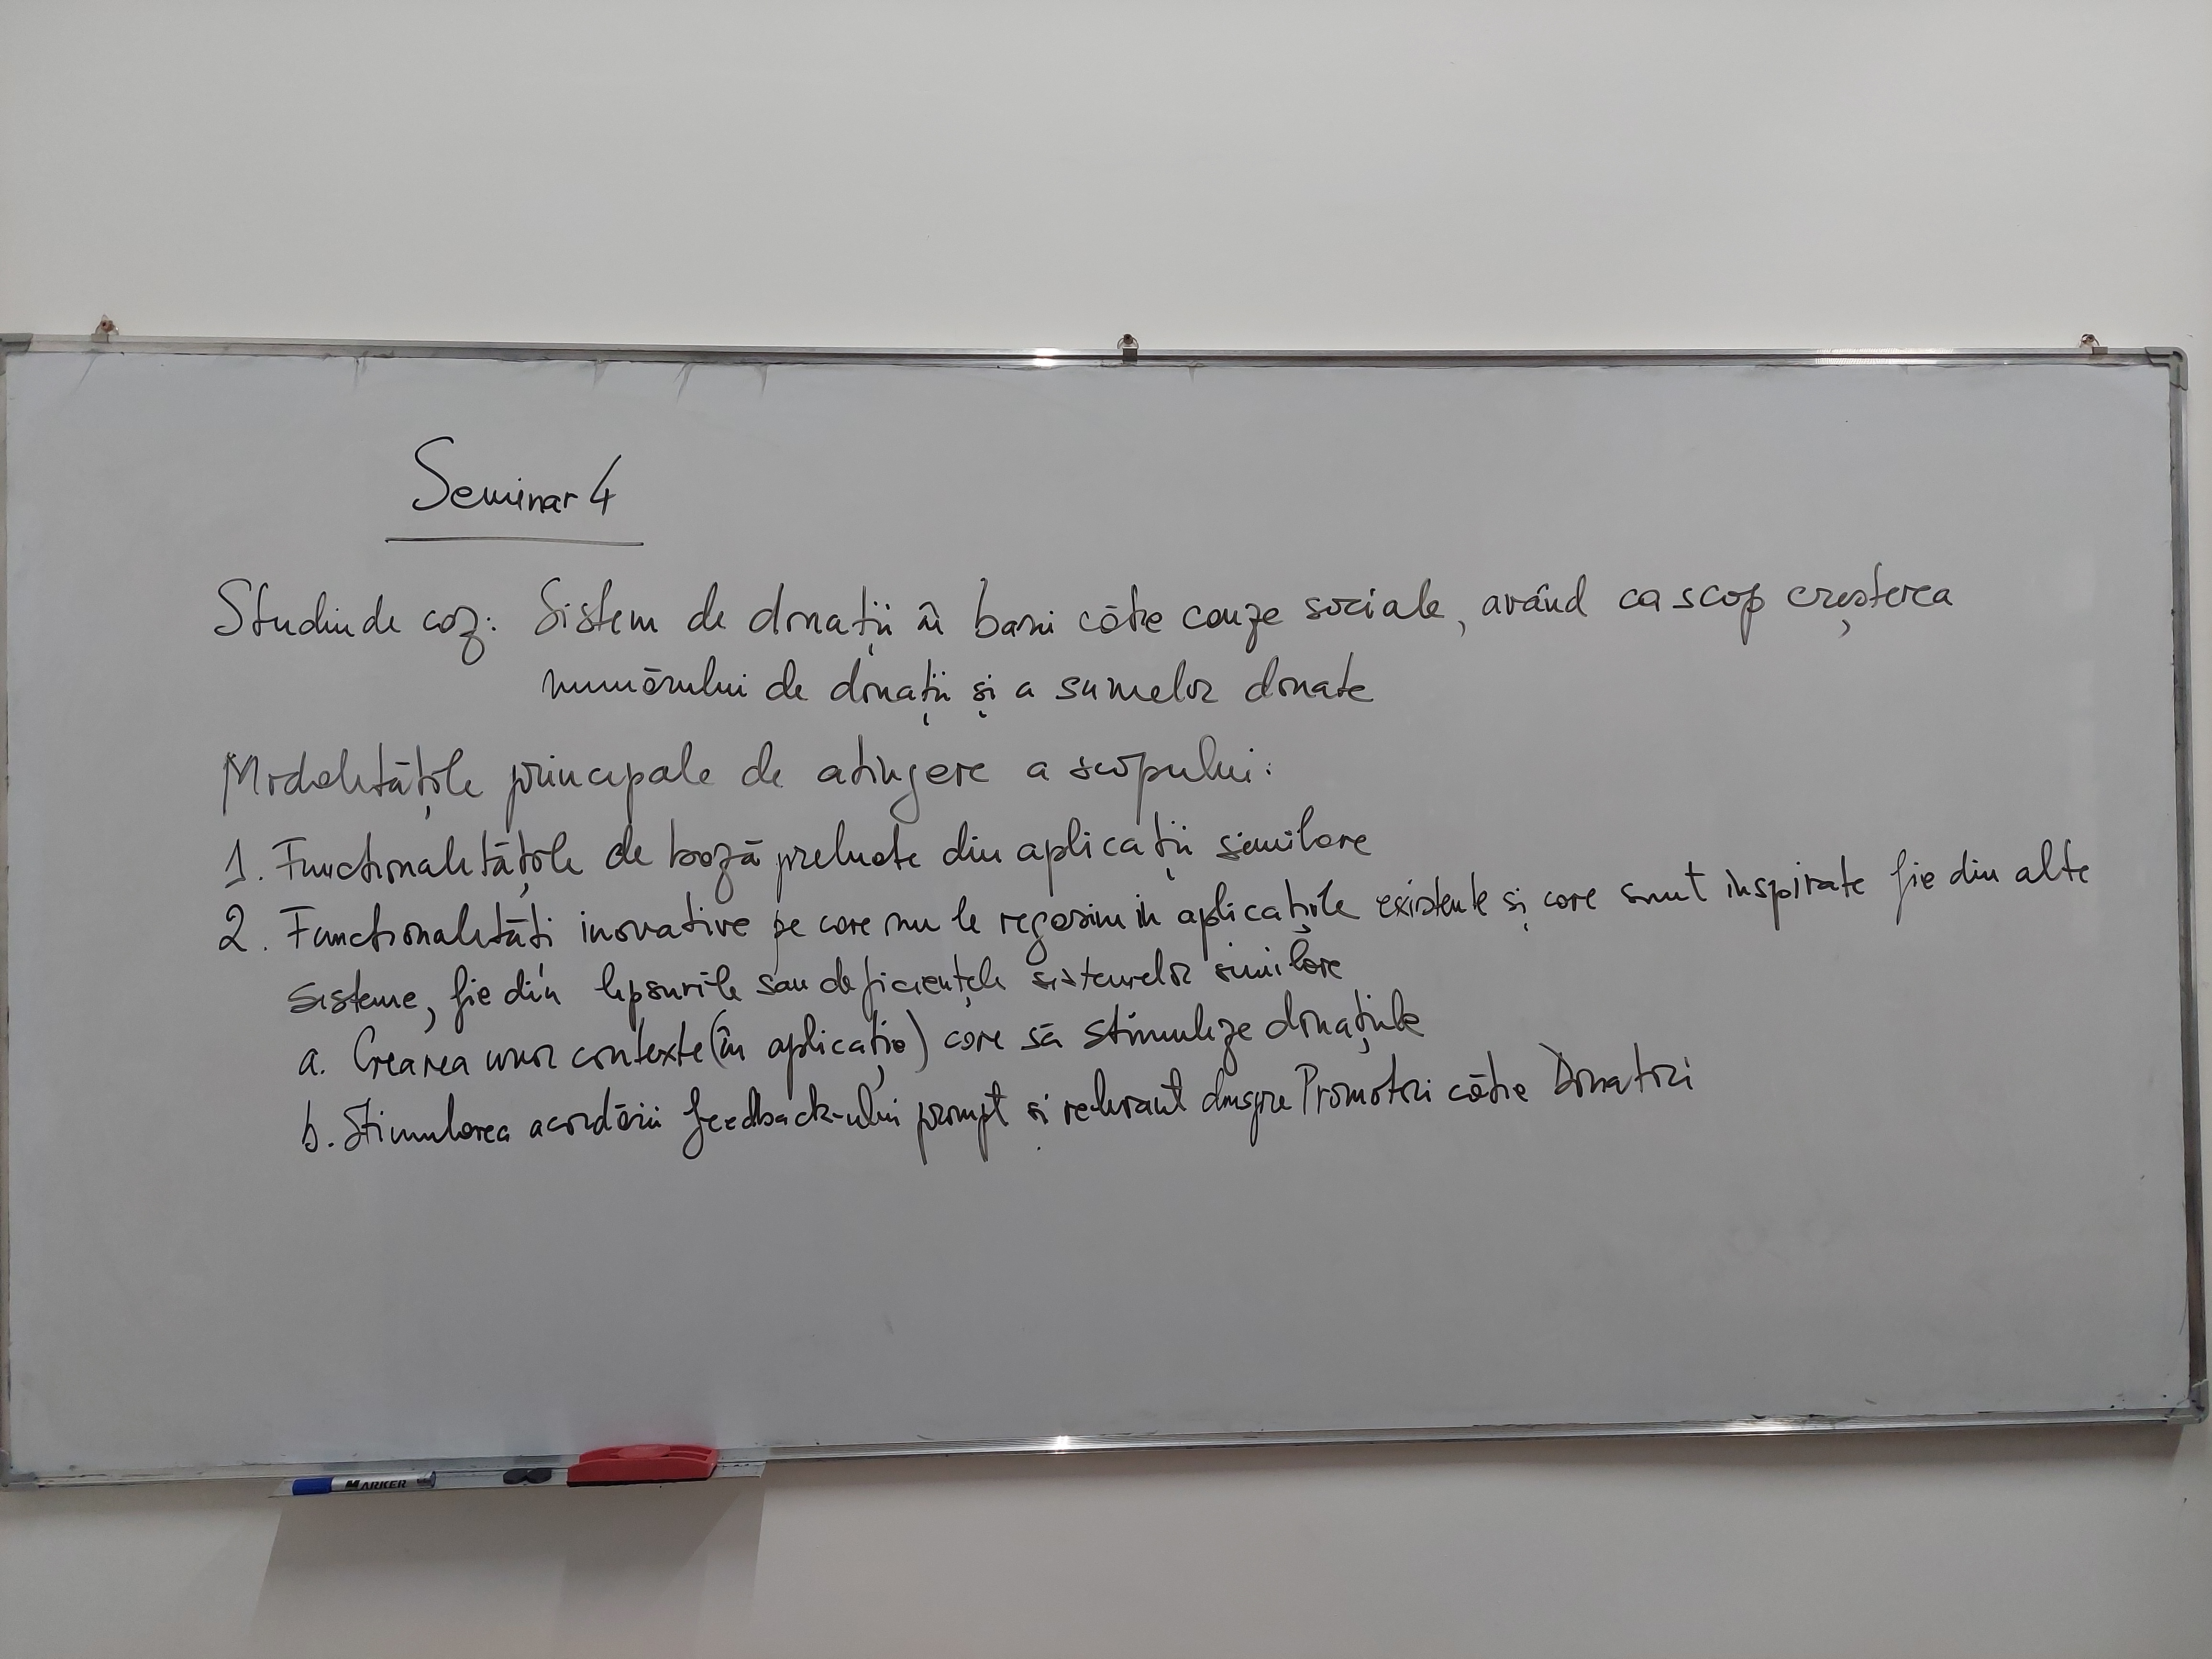 Seminar 4
Studiu de caz: Sistem de donații în bani către cauze sociale, având ca scop creșterea
numărului de donații și a sumelor donate
Modalitățile principale de atingere a scopului:
1. Funcționalitățile de bază preluate din aplicații similare
2. Funcționalități inovative pe care nu le regăsim în aplicațiile existente și care sunt inspirate fie din alte
sisteme, fie din lipsurile sau deficiențele sistemelor similare
a. Crearea unor contexte (în aplicație) care să stimuleze donațiile
b. Stimularea acordării feedback-ului prompt și relevant dinspre Promotori către Donatori
MARKER